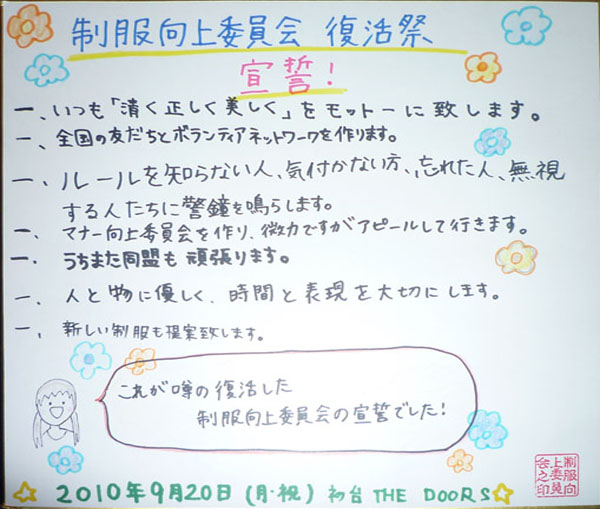 制服向上委員会 復活祭
宣誓!
一、いつも「清く正しく美しく」をモットーに致します。
一、全国の友だちとボランティアネットワークを作ります。
一、ルールを知らない人、気付かない方、忘れた人、無視
する人たちに警鐘を鳴らします。
一、マナー向上委員会を作り、微力ですがアピールして行きます。
一、うちまた同盟も頑張ります。
一、人と物に優しく、時間と表現を大切にします。
一、新しい制服も提案致します。
これが噂の復活した
制服向上委員会の宣誓でした!
制服向上委員会之印
2010年9月20日(月・祝) 初台 THE DOORS